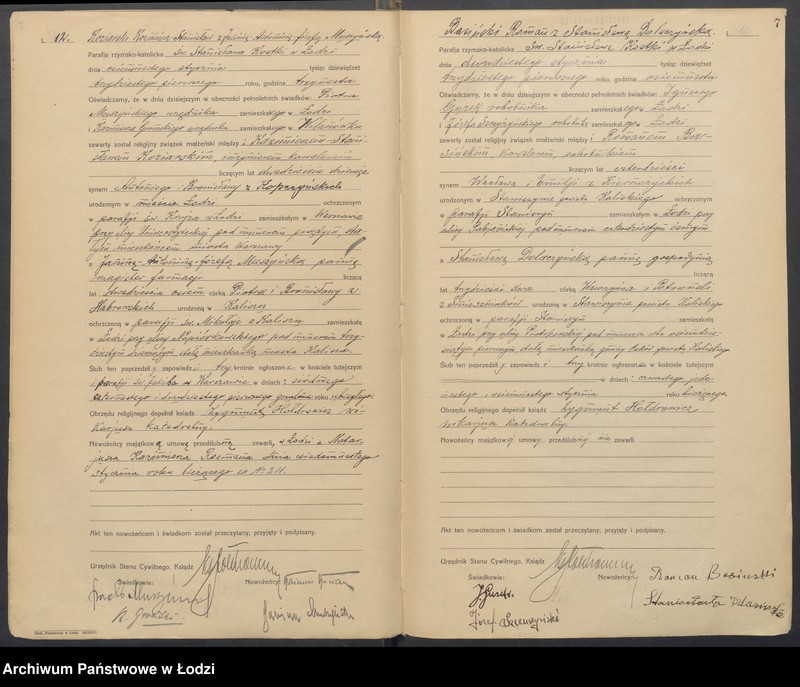 12. Koziarski Kazimierz Stanisław z Janiną Antoniną Józefą Muszyńską.
Parafja rzymsko-katolicka Św. Stanisława Kostki w Łodzi
dnia osiemnastego stycznia tysiąc dziewięćset
trzydziestego pierwszego roku, godzina trzynasta
Oświadczamy, że w dniu dzisiejszym w obecności pełnoletnich świadków: Piotra
Muszyńskiego urzędnika zamieszkałego w Łodzi
i Kazimierza zamieszkałego w
zawarty został religijny związek małżeński między: Kazimierzem-Stani-
sławem Koziarskim, inżynierem kawalerem
liczącym lat dwadzieścia dziewięć
synem Antoniego i Bronisławy z Kopczyńskich
urodzonym w mieście Łodzi ochrzczonym
w parafji św. Krzyża w Łodzi zamieszkałym w Warszawie
przy ulicy Uniwersyteckiej pod numerem piątym, sta-
łym mieszkańcem miasta Warszawy
a Janiną-Antoniną-Józefą Muszyńską panną
magister farmacji liczącą
lat dwadzieścia osiem córką Piotra i Bronisławy z
Habrowskich urodzoną w Kaliszu
ochrzczoną w parafji św. Mikołaja w Kaliszu zamieszkałą
w Łodzi przy ulicy Napiórkowskiego pod numerem trzy-
dziestym dziewiątym stałą mieszkanką miasta Kalisza.
Ślub ten poprzedziły zapowiedzi trzykrotnie ogłoszone w kościele tutejszym
i parafji w Warszawie w dniach: siódmego
czternastego i dwudziestego pierwszego grudnia roku ubiegłego.
Obrzędu religijnego dopełnił ksiądz Zygmunt Hołdrowicz wi-
karjusz katedralny.
Nowożeńcy majątkową umowę przedślubną zawarli, w Łodzi u Notar-
jusza Kazimierza Rosmana dnia siedemnastego
stycznia roku bieżącego za Nr 211.
Akt ten nowożeńcom i świadkom został przeczytany, przyjęty i podpisany.
Urzędnik Stanu Cywilnego. Ksiądz
Świadkowie: Nowożeńcy:
7
Basiński Roman z Stanisławą Dolaczyńską.
Parafja rzymsko-katolicka Św. Stanisława Kostki w Łodzi
dnia dwudziestego stycznia tysiąc dziewięćset
trzydziestego pierwszego roku, godzina osiemnasta
Oświadczamy, że w dniu dzisiejszym w obecności pełnoletnich świadków: Ignacego
robotnika zamieszkałego w Łodzi
i Józefa robotnika zamieszkałego w Łodzi
zawarty został religijny związek małżeński między: Romanem Ba-
sińskim, kawalerem, robotnikiem
liczącym lat czterdzieści
synem Wacława i Emilji z
urodzonym w Stawiszynie powiatu Kaliskiego ochrzczonym
w parafji Stawiszyn zamieszkałym w Łodzi przy
ulicy Pabjanickiej pod numerem czterdziestym ósmym
a Stanisławą Dolaczyńską panną gospodynią
liczącą
lat trzydzieści dwa córką Wawrzyńca i Petroneli
z urodzoną w Stawiszynie powiatu Kaliskiego
ochrzczoną w parafji Stawiszyn zamieszkałą
w Łodzi przy ulicy pod numerem sto osiemdzie-
siątym pierwszym stałą mieszkanką gminy powiatu Kaliskiego
Ślub ten poprzedziły zapowiedzi trzykrotnie ogłoszone w kościele tutejszym
w dniach: czwartego jede-
nastego i osiemnastego stycznia roku bieżącego
Obrzędu religijnego dopełnił ksiądz Zygmunt Hołdrowicz
wikarjusz katedralny.
Nowożeńcy majątkowej umowy przedślubnej nie zawarli
Akt ten nowożeńcom i świadkom został przeczytany, przyjęty i podpisany.
Urzędnik Stanu Cywilnego. Ksiądz
Świadkowie: Nowożeńcy: Roman Basiński
Archiwum Państwowe w Łodzi